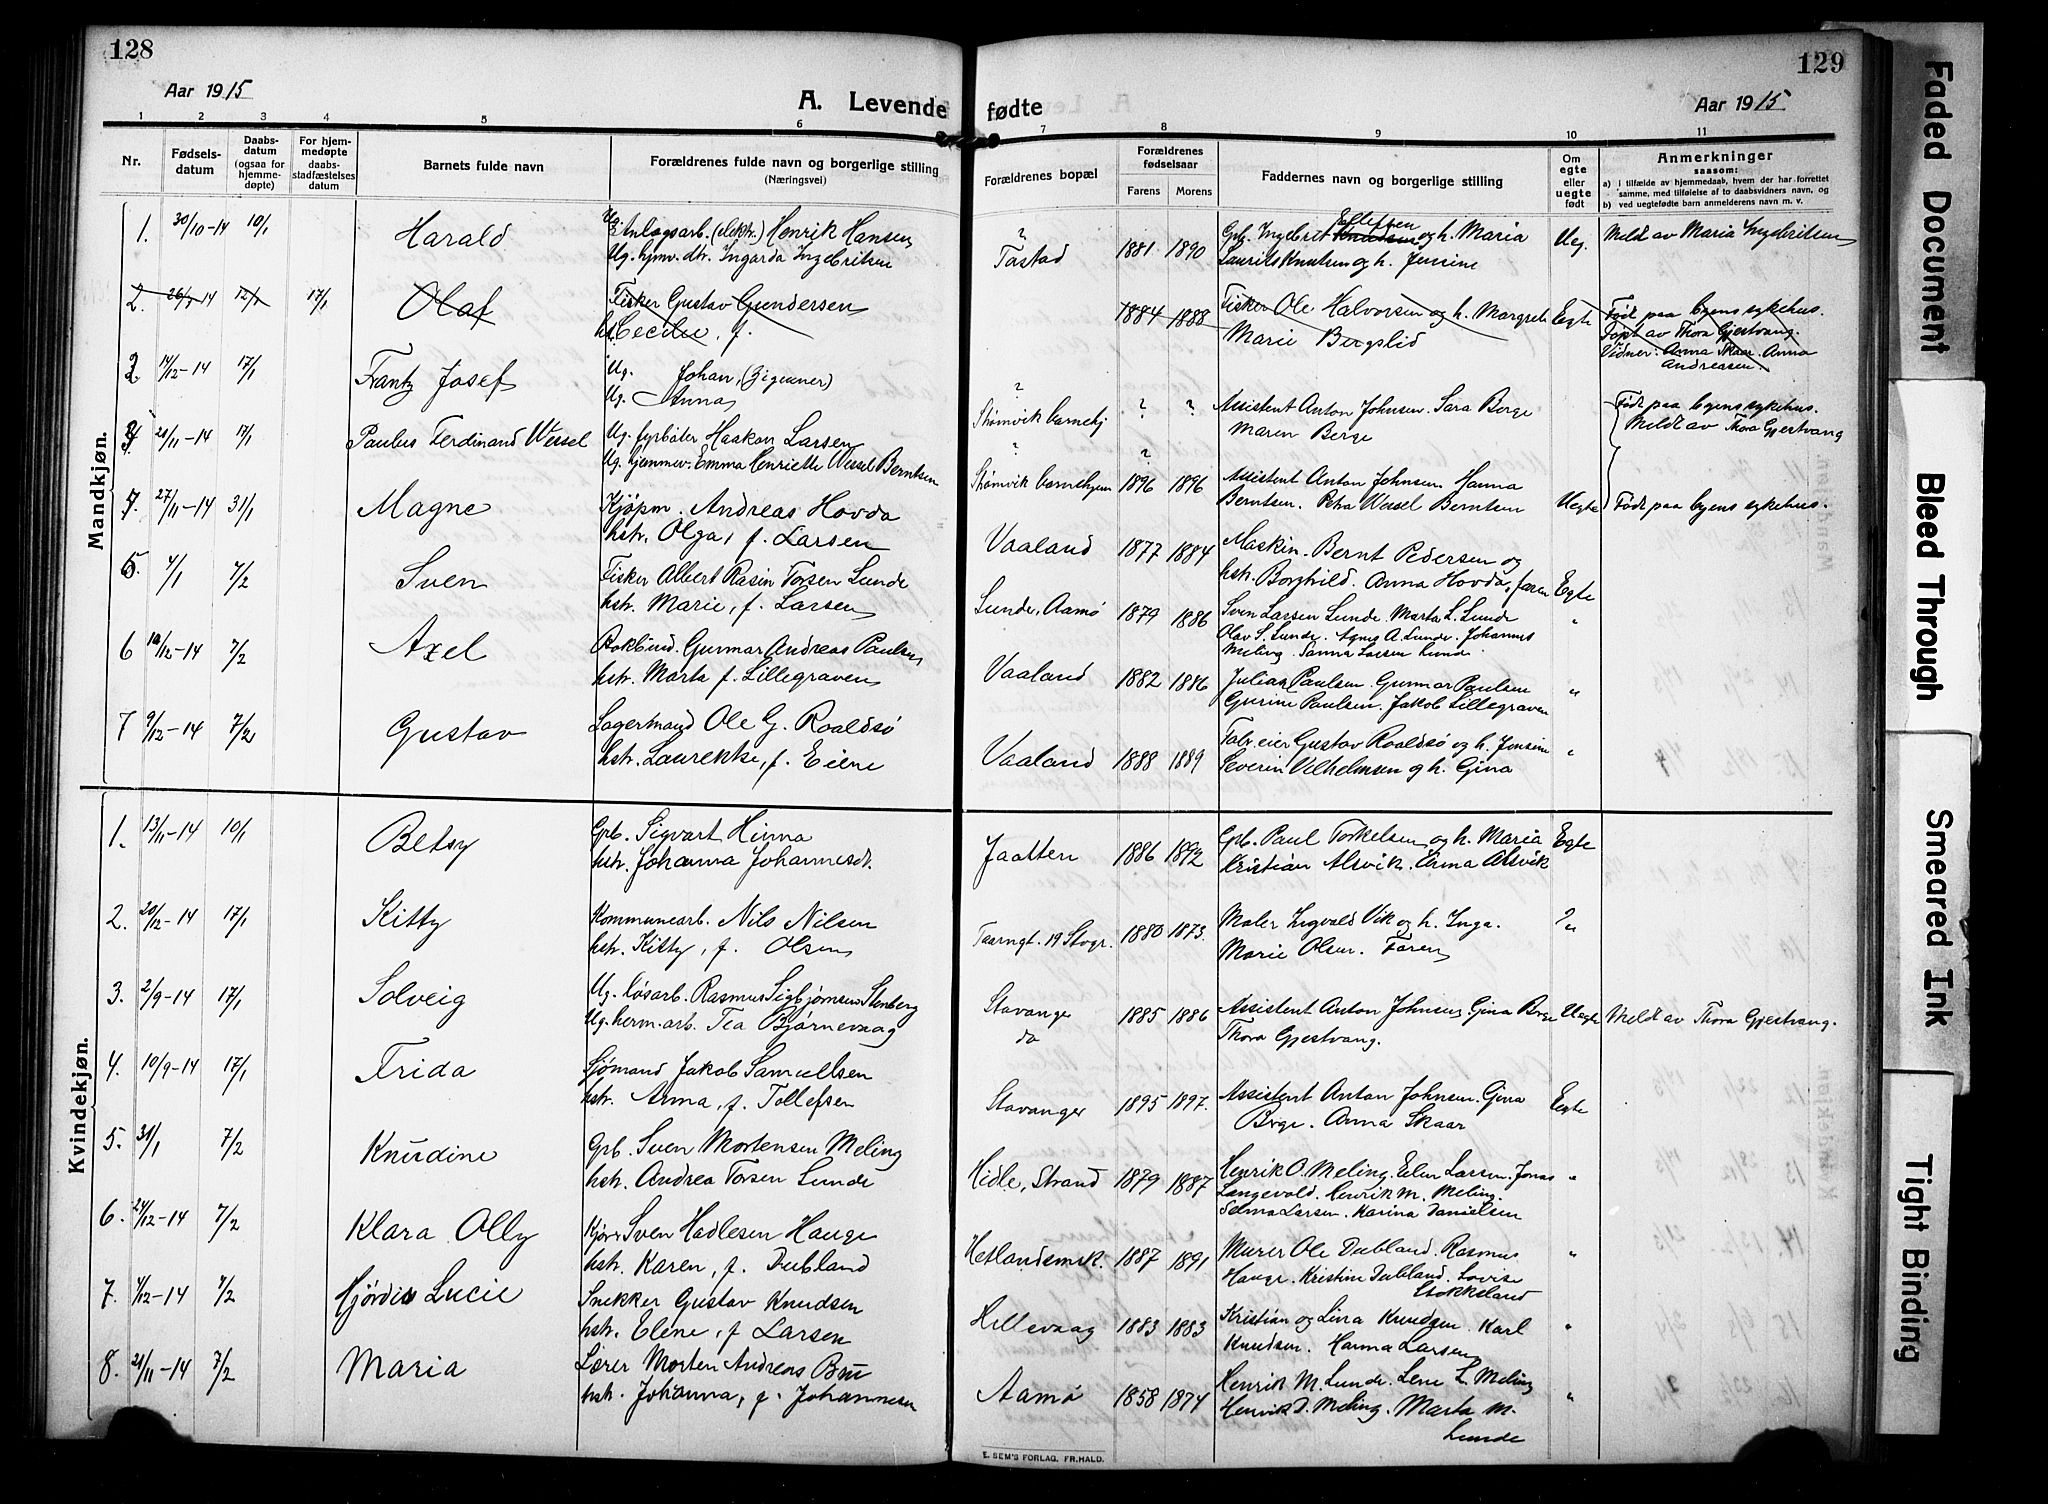 128
129
Aar 1915
A. Levende fødte
Aar 1915
1 2 3 4 5 6 7 8 9 10 11
Nr.
Fødsels-datum
Daabs-datum (ogsaa for hjemme-døpte)
For hjem-medøpte daabs-stadfæstelses datum
Barnets fulde navn
Forældrenes fulde navn og borgerlige stilling
(Næringsvei)
Forældrenes bopæl
Forældrenes fødselsaar
Farens Morens
Faddernes navn og borgerlige stilling
Om egte eller uegte født
Anmerkninger
saasom:
a) i tilfælde av hjemmedaab, hvem der har forrettet
samme, med tilføielse af to daabsvidners navn, og
b) ved uegtefødte barn anmelderens navn m. v.
Mandkjøn.
1. 30/10-14 10/1 Harald Ug. Anlægsarb. (elektr.) Henrik Hansen
Ug. hjmv. dtr. Ingarda Ingebritsen
? Tastad 1881 1890 Grb. Ingebrit Tollefsen og h. Maria
Laurits Knutsen og h. Jensine
Ueg. Meldt av Maria Ingebritsen
2. 26/8 14 12/1 17/1 Olaf Fisker Gustav Gundersen
h. Cecilie, f.
1884 1888 Fisker Ole Halvorsen og h. Margrete
Marie Bergslid
Egte Født paa byens sykehus.
Døpt av Thora Gjestvang.
Vidner: Anna Skaar. Anna
Andreasen.
2 14/12-14 17/1 Frantz Josef Ug. Johan, (Zigeuner)
Ug. Anna
? Strømvik barnehj ? ? Assistent Anton Johnsen. Sara Berge
Maren Berge
Født paa byens sykehus.
Meldt av Thora Gjestvang
3 20/11-14 17/1 Paulus Ferdinand Wessel Ug. fyrbøter Haakon Larsen
Ug. hjemmev. Emma Henriette Wessel Berntsen
? Strømvik barnehjem 1896 1896 Assistent Anton Johnsen. Hanna
Berntsen. Petra Wessel Berntsen
Uegte Født paa byens sykehus.
4. 27/11-14 31/1 Magne Kjøpm. Andreas Hovda
hstr. Olga, f. Larsen
Vaaland 1877 1884 Maskin. Bernt Pedersen og
hstr. Borghild. Anna Hovda, faren
Egte
5. 4/1 7/2 Sven Fisker Albert Rasin Torsen Lunde
hstr. Marie, f. Larsen
Lunde, Aamø 1879 1886 Sven Larsen Lunde. Marta L. Lunde
Olav S. Lunde. Agnes A. Lunde. Johannes
Meling. Sanna Larsen Lunde.
"
6 10/12-14 7/2 Axel Bokbind. Gunnar Andreas Paulsen
hstr. Marta f. Lillegraven
Vaaland 1882 1886 Julian Paulsen. Gunnar Paulsen
Gurine Paulsen. Jakob Lillegraven
"
7 9/12-14 7/2 Gustav Lagermand Ole G. Roaldsø
hstr. Laurekke, f. Eiene
Vaaland 1888 1889 Fabr.eier Gustav Roaldsø og h. Jensine
Severin Vilhelmsen og h. Gina
"
Kvindekjøn.
1. 13/11-14 10/1 Betsy Grb. Sigvart Hinna
hstr. Johanna Johannesdt.
Jaatten 1886 1892 Grb. Paul Torkelsen og h. Maria
Kristian Alsvik. Anna Alsvik
Egte
2. 20/12-14 17/1 Kitty Kommunearb. Nils Nilsen
hstr. Kitty, f. Olsen
Taarngt. 19 Stvgr. 1880 1873. Maler Ingvald Vik og h. Inga.
Marie Olsen. Faren
"
3. 2/9-14 17/1 Solveig Ug. løsarb. Rasmus Sigbjørnsen Stenberg
Ug. herm. arb. Tea Bjørnevaag
Stavanger
do
1885 1886 Assistent Anton Johnsen, Gina Berge
Thora Gjestvang.
Uegte Meldt av Thora Gjestvang.
4. 10/9-14 17/1 Frida Sjømand Jakob Samuelsen
hstr. Anna, f. Tollefsen
Stavanger 1895 1897. Assistent Anton Johnsen. Gina
Berge. Anna Skaar
Egte
5. 31/1 7/2 Knudine Grb. Sven Mortensen Meling
hstr. Andrea Torsen Lunde
Hidle, Strand 1879 1887 Henrik O. Meling. Elen Larsen. Jonas
Langevold. Henrik M. Meling.
Selma Larsen. Karina Danielsen
"
6. 24/12-14 7/2 Klara Olly Kjører Sven Hadlesen Hauge
hstr. Karen, f. Dubland
Hetlandsmk. 1887 1891 Murer Ole Dubland. Rasmus
Hauge. Kristine Dubland. Lovise
Stokkeland
"
7. 4/12-14 7/2 Hjørdis Lucie Snekker Gustav Knudsen
hstr. Elene, f. Larsen
Hillevaag 1883 1883 Kristian og Lina Knudsen. Karl
Knudsen. Hanna Larsen
"
8. 21/11-14 7/2 Maria Lærer Morten Andreas Bru
hstr. Johanna, f. Johannesen
Aamø 1858 1874 Henrik M. Lunde. Lene L. Meling
Henrik D. Meling. Marta M.
Lunde
"
E. SEM'S FORLAG, FR.HALD.
Faded Document
Bleed Through
Smeared Ink
Tight Binding